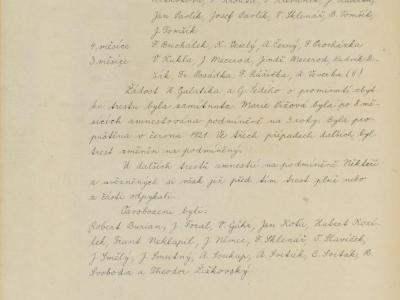 Jan Pavlík, Josef Pavlík, V. Sklenář, B. Tomšík,
J. Tomšík
4 měsíce F. Buchálek, K. Veselý, A. Černý, F. Procházka
3 měsíce V. Kukla, J. Macerod, Jindř. Macerod, Ludvík
žák, Fr. Posádka, F. Růžička, A. Severka (8)
Žádost K. Galatíka a G. Šedého o prominutí zbyt-
ku trestu byla zamítnuta. Marie Pížová byla po 8 mě-
sících amnestována podmíněně na 3 roky. Byla pro-
puštěna v červnu 1921. Ve třech případech dalších byl
trest změněn na podmíněný.
U dalších trestů amnestií na podmíněné. Někteří
z vězněných si však již před tím trest plně nebo
z části odpykali.
Osvobozeni byli:
Robert Burian, J. Foral, V. Gühr, Jan Koťa, Hubert Kozí-
lek, Frant. Neklapil, J. Němec, F. Sklenář, T. Slavíček,
J. Smělý, J. Smutný, A. Soukup, A. Sviták, E. Sviták, R.
Svoboda a Theodor Žižkovský